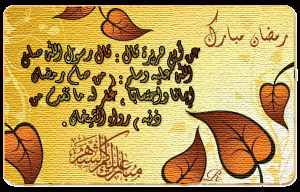 رمضان مبارك
عن أبي هريرة قال : قال رسول الله صلى
الله عليه وسلم : من صام رمضان
إيمانا واحتسابا ، غفر له ما تقدم من
ذنبه . رواه الشيخان .
مبارك عليكم الشهر
R